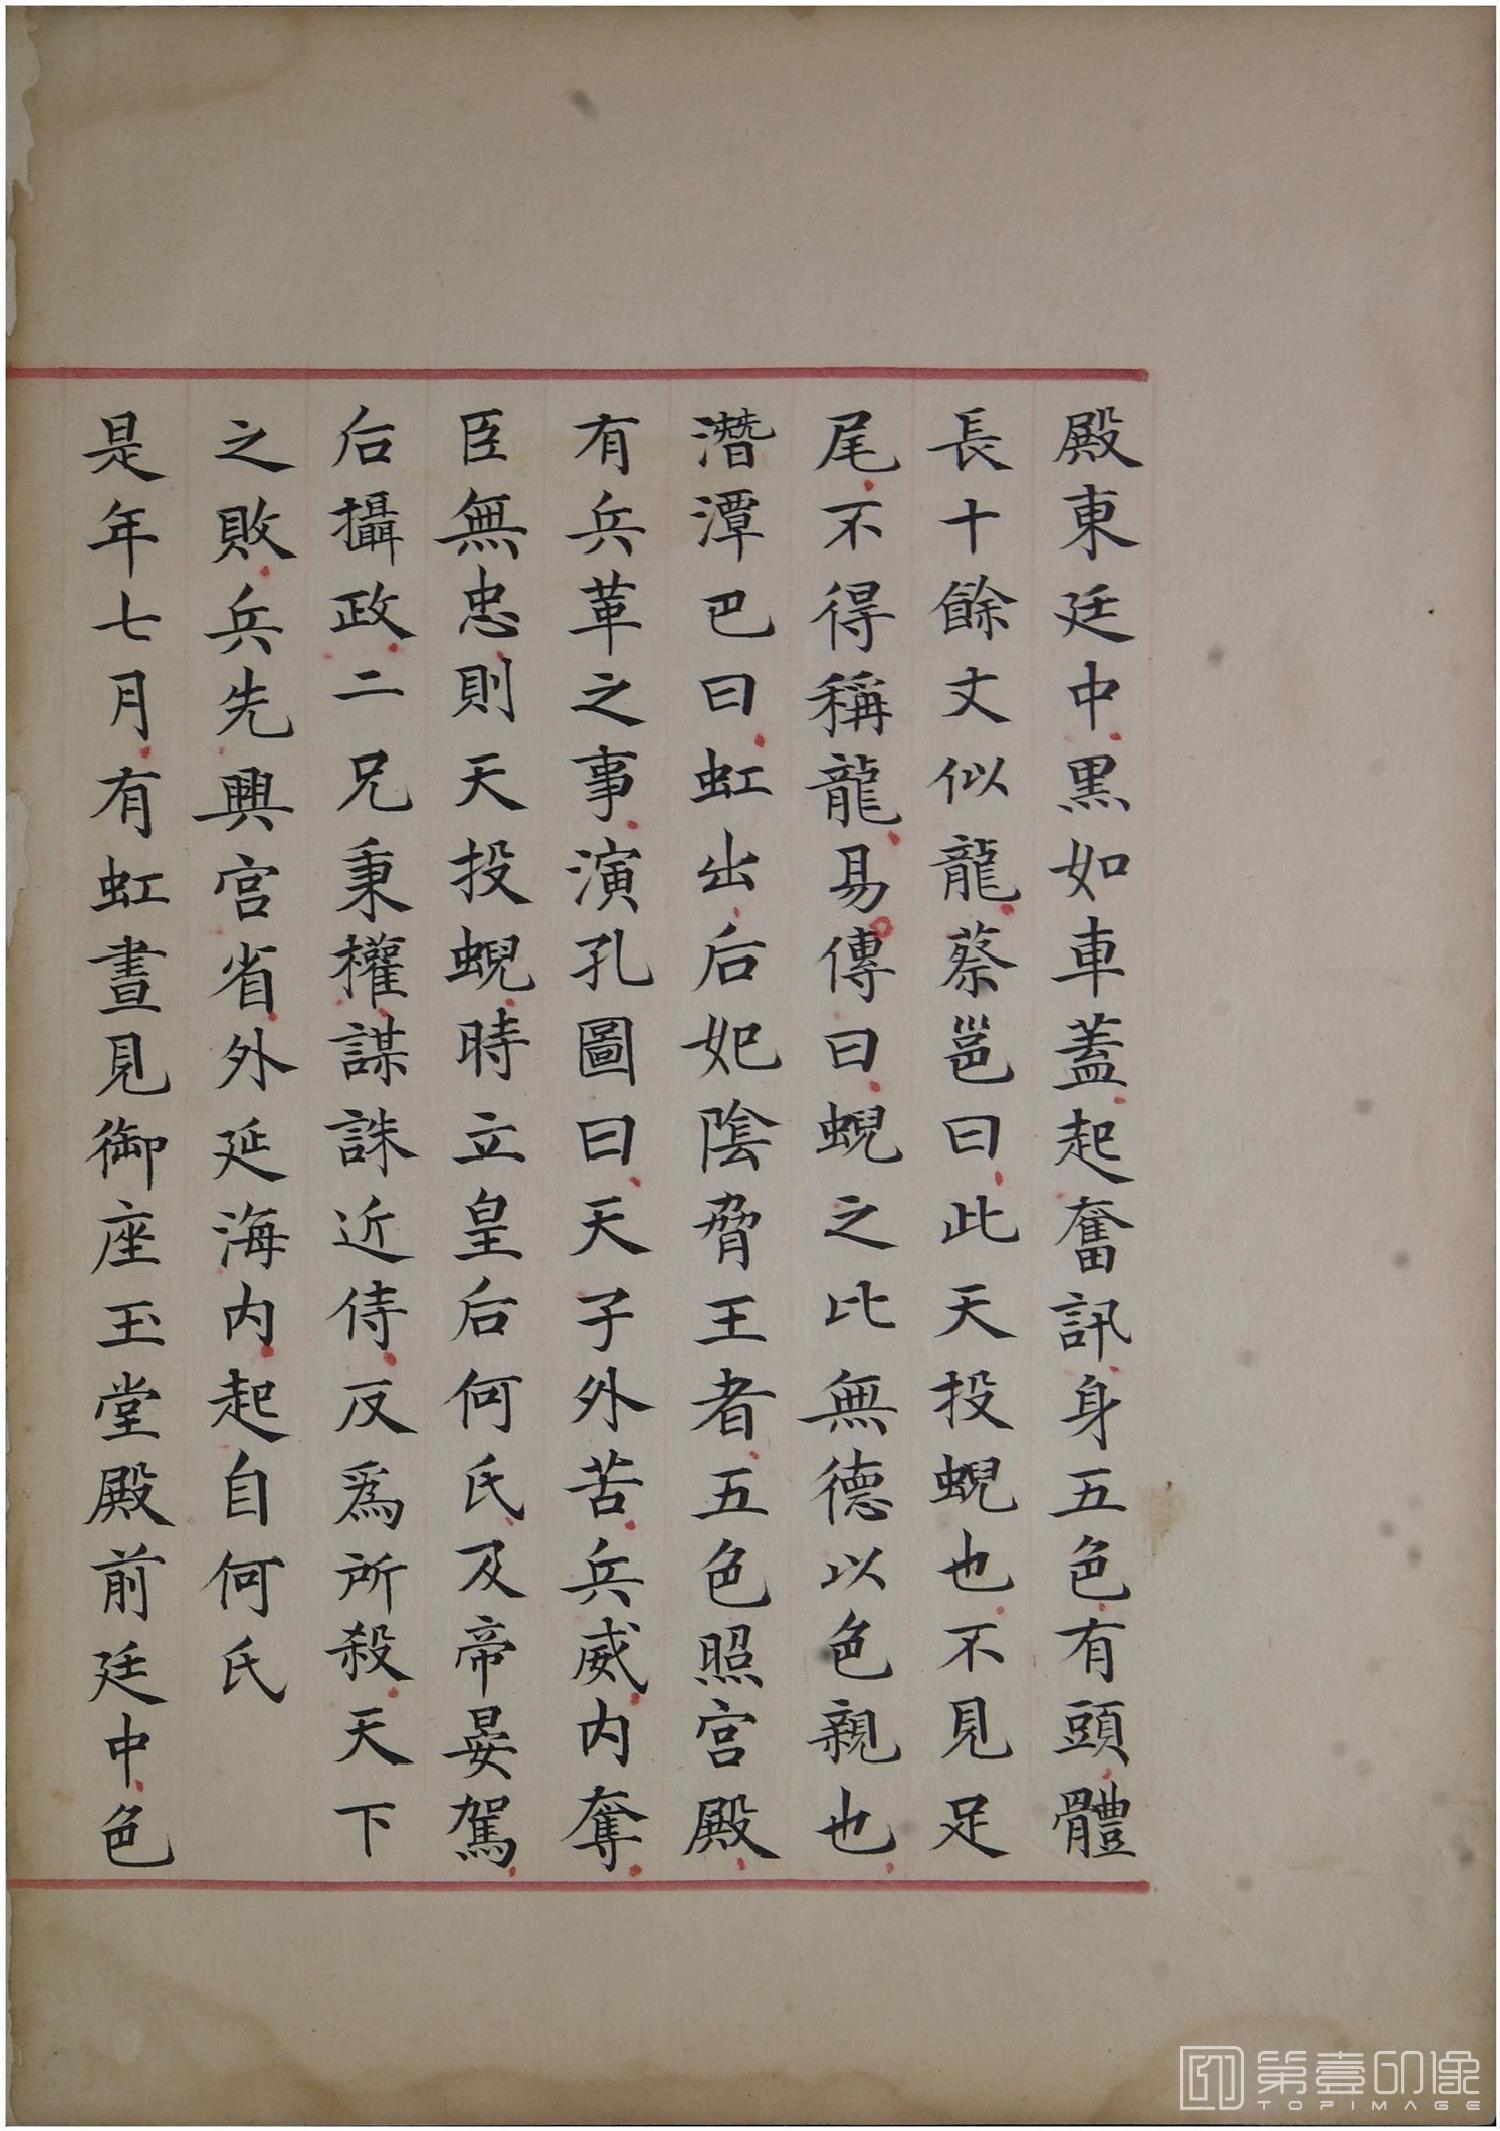 殿東廷中黑如車蓋起奮訊身五色有頭體
長十餘丈似龍蔡邕曰此天投蜺也不見足
尾不得稱龍易傳曰蜺之比無德以色親也
潛潭巴曰虹出后妃陰脅王者五色照宮殿
有兵革之事演孔圖曰天子外苦兵威內奪
臣無忠則天投蜺時立皇后何氏及帝晏駕
后攝政二兄秉權謀誅近侍反為所殺天下
之敗兵先興宮省外延海內起自何氏
是年七月有虹晝見御座玉堂殿前廷中色
第壹印像
TOPIMAGE